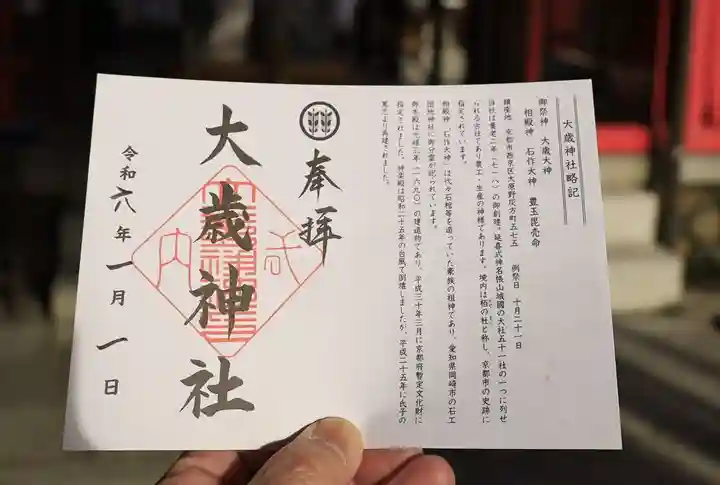 大歳神社略記
御祭神 大歳大神
相殿神 石作大神 豊玉毘売命
鎮座地 京都市西京区大原野灰方町五七五 例祭日 十月二十一日
当社は養老二年(七一八)の御創建。延喜式神名帳山城國の大社五十一社の一つに列せ
られる古社であり農工・生産の神様であります。境内は栢の社と称し、京都市の史跡に
指定されています。
相殿神「石作大神」は代々石棺等を造っていた豪族の祖神であり、愛知県岡崎市の石工
団地神社に御分霊が祀られています。
御本殿は元禄三年(一六九〇)の建造物であり、平成三十年三月に京都府暫定文化財に
指定されました。神楽殿は昭和二十五年の台風で倒壊しましたが、平成二十五年に氏子の
篤志により再建されました。
奉拝
大歳神社
令和六年一月一日